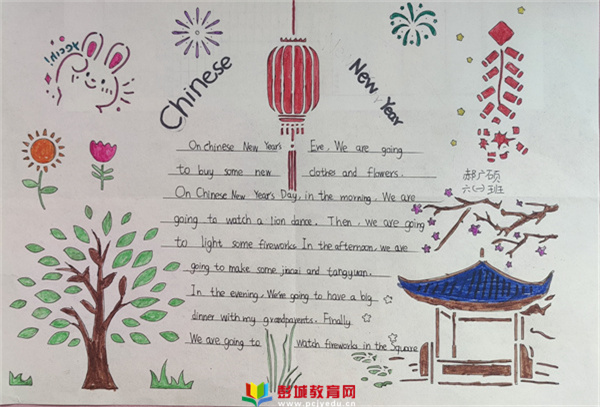 Chinese
New Year
郝广硕
六(一)班
On chinese New Year's Eve, We are going
to buy some new clothes and flowers.
On Chinese New Year's Day, in the morning, We are
going to watch a lion dance. Then, we are going
to light some fireworks. In the afternoon, we are
going to make some jiaozi and tangyuan.
In the evening, We're going to have a big
dinner with my grandparents. Finally
We are going to watch fireworks in the Square
彭城教育网
www.pcjyedu.cn